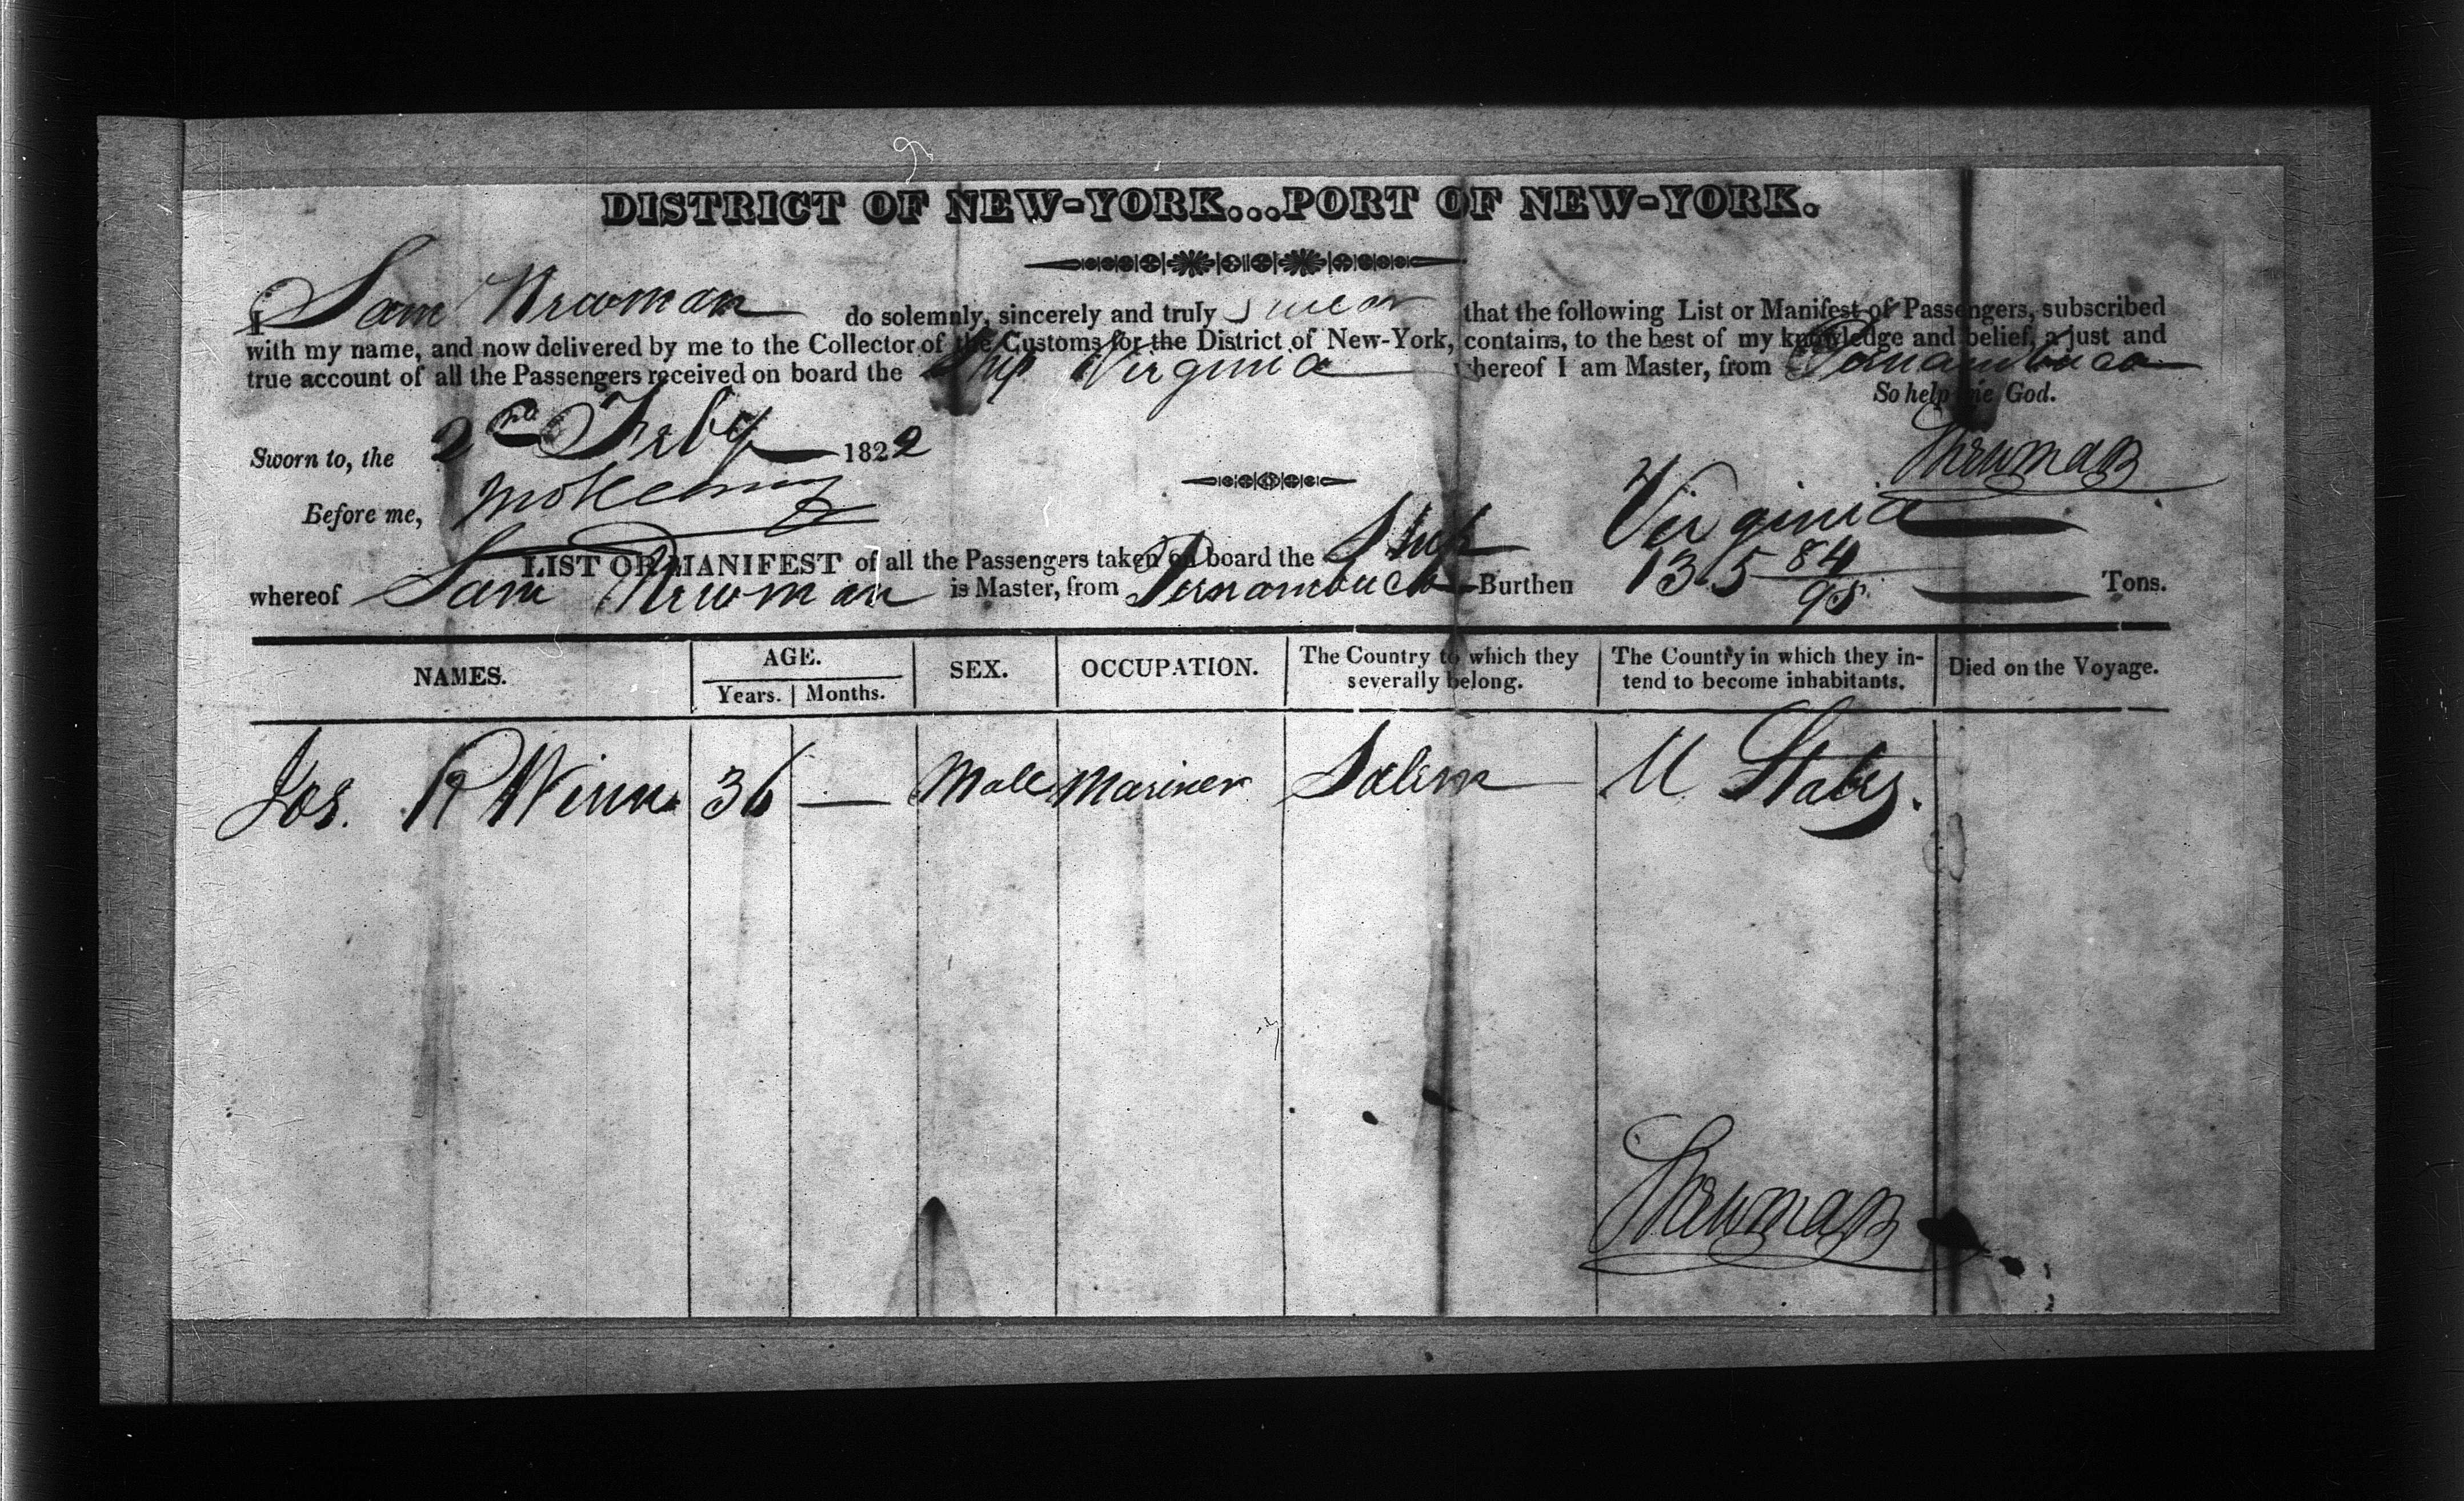 DISTRICT OF NEW-YORK...PORT OF NEW-YORK.
I Sam Newman do solemnly, sincerely and truly swear that the following List or Manifest of Passengers, subscribed
with my name, and now delivered by me to the Collector of the Customs for the District of New-York, contains, to the best of my knowledge and belief, a just and
true account of all the Passengers received on board the Ship Virginia whereof I am Master, from Pernambuco
So help me God.
Sworn to, the 2nd Feby 1822
SNewman
Before me,
LIST OR MANIFEST of all the Passengers taken on board the Ship Virginia
whereof Sam Newman is Master, from Pernambuco Burthen 135 84/95 Tons.
NAMES. AGE. Years. Months. SEX. OCCUPATION. The Country to which they severally belong. The Country in which they intend to become inhabitants. Died on the Voyage.
Jos. R Winn 36 — Male Mariner Salem U States.
SNewman